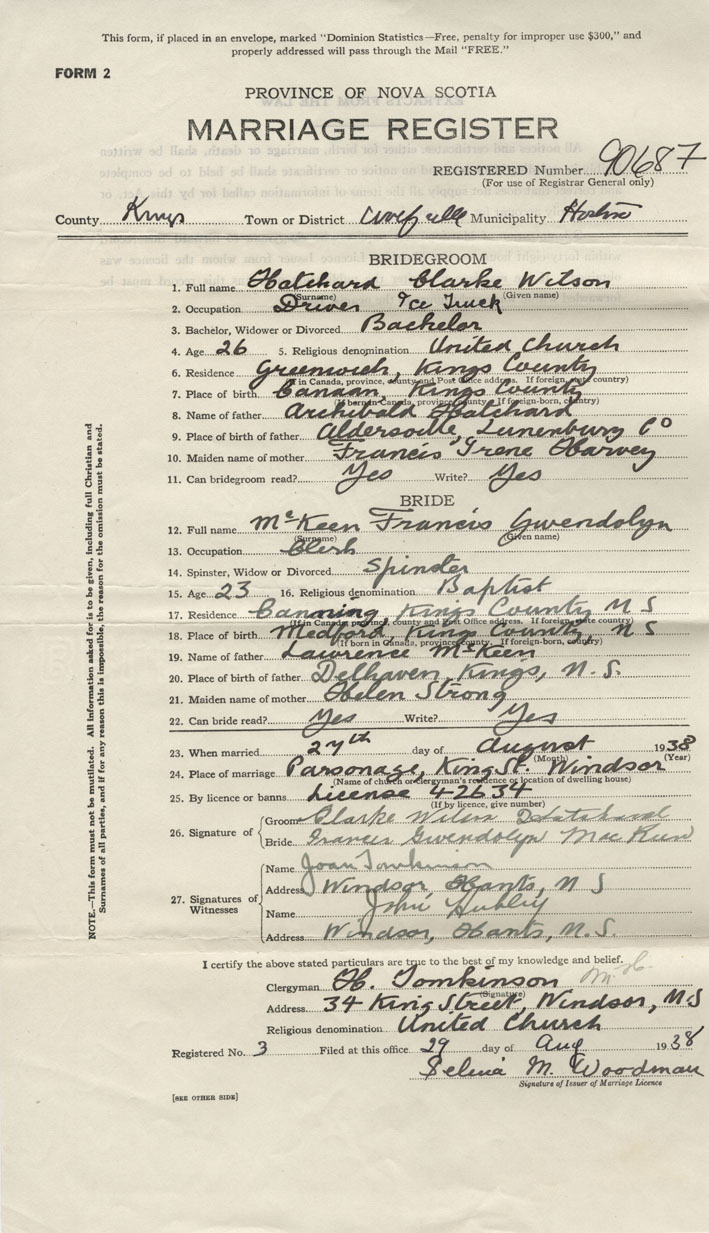 This form, if placed in an envelope, marked "Dominion Statistics—Free, penalty for improper use $300," and
properly addressed will pass through the Mail "FREE."
FORM 2
PROVINCE OF NOVA SCOTIA
MARRIAGE REGISTER
REGISTERED Number 90687
(For use of Registrar General only)
County Kings Town or District Municipality
BRIDEGROOM
1. Full name Hatchard Clarke Wilson
(Surname) (Given name)
2. Occupation Driver Ice Truck
3. Bachelor, Widower or Divorced Bachelor
4. Age 26 5. Religious denomination United Church
6. Residence Greenwich, Kings County
(If in Canada, province, county and Post Office address. If foreign, state country)
7. Place of birth Canaan, Kings County
(If born in Canada, province, county. If foreign-born, country)
8. Name of father Archibald Hatchard
9. Place of birth of father Aldersville Lunenburg Co
10. Maiden name of mother Francis Irene Harvey
11. Can bridegroom read? Yes Write? Yes
BRIDE
12. Full name McKeen Francis Gwendolyn
(Surname) (Given name)
13. Occupation Clerk
14. Spinster, Widow or Divorced Spinster
15. Age 23 16. Religious denomination Baptist
17. Residence Canning, Kings County N S
(If in Canada, province, county and Post Office address. If foreign, state country)
18. Place of birth Medford, Kings County, N S
(If born in Canada, province, county. If foreign-born, country)
19. Name of father Lawrence McKeen
20. Place of birth of father Delhaven, Kings, N.S.
21. Maiden name of mother Helen Strong
22. Can bride read? Yes Write? Yes
23. When married 27th day of August 1938
(Month) (Year)
24. Place of marriage Parsonage, King St. Windsor
(Name of church or clergyman's residence or location of dwelling house)
25. By licence or banns License 42634
(If by licence, give number)
26. Signature of
Groom Clarke Wilson Hatchard
Bride Francis Gwendolyn MacKeen
27. Signatures of Witnesses
Name Joan Tomkinson
Address Windsor, Hants, N S
Name John Hubley
Address Windsor, Hants, N.S.
I certify the above stated particulars are true to the best of my knowledge and belief.
Clergyman H. Tomkinson
(Signature)
Address 34 King Street, Windsor, N.S
Religious denomination United Church
Registered No. 3 Filed at this office 29 day of Aug 1938
Selina M. Woodman
Signature of Issuer of Marriage Licence
[SEE OTHER SIDE]
NOTE.—This form must not be mutilated. All information asked for is to be given, including full Christian and
Surnames of all parties, and if for any reason this is impossible, the reason for the omission must be stated.